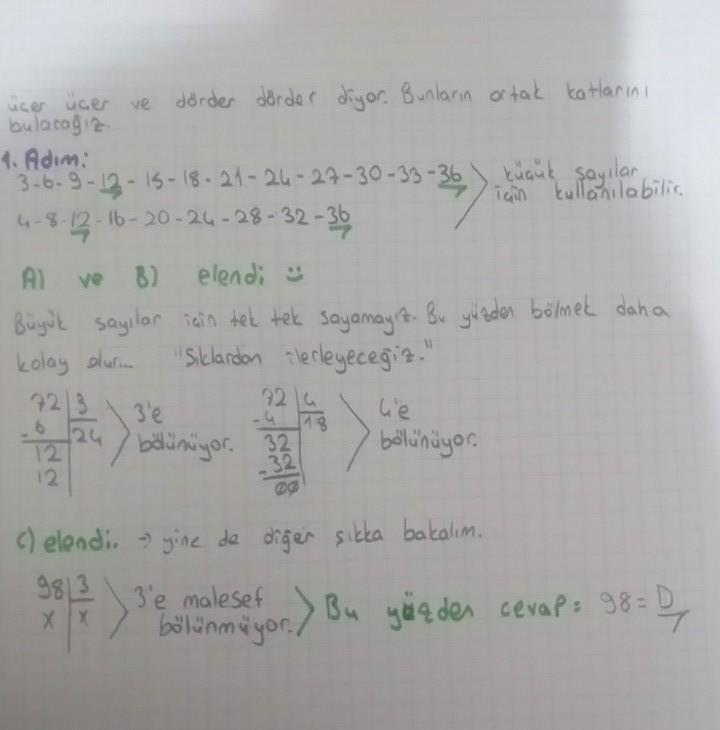 üçer üçer ve dörder dörder diyor. Bunların ortak katlarını
bulacağız.
1. Adım:
3-6-9-12-15-18-21-24-27-30-33-36 > küçük sayılar
için kullanılabilir.
4-8-12-16-20-24-28-32-36
A) ve B) elendi :)
Büyük sayılar için tek tek sayamayız. Bu yüzden bölmek daha
kolay olur... "Şıklardan ilerleyeceğiz."
72 | 3
- 6 | 24
12
12
3'e
bölünüyor.
72 | 4
- 4 | 18
32
- 32
00
4'e
bölünüyor.
C) elendi. → yine de diğer şıkka bakalım.
98 | 3
x | x
3'e malesef
bölünmüyor.
Bu yüzden cevap = 98 = D